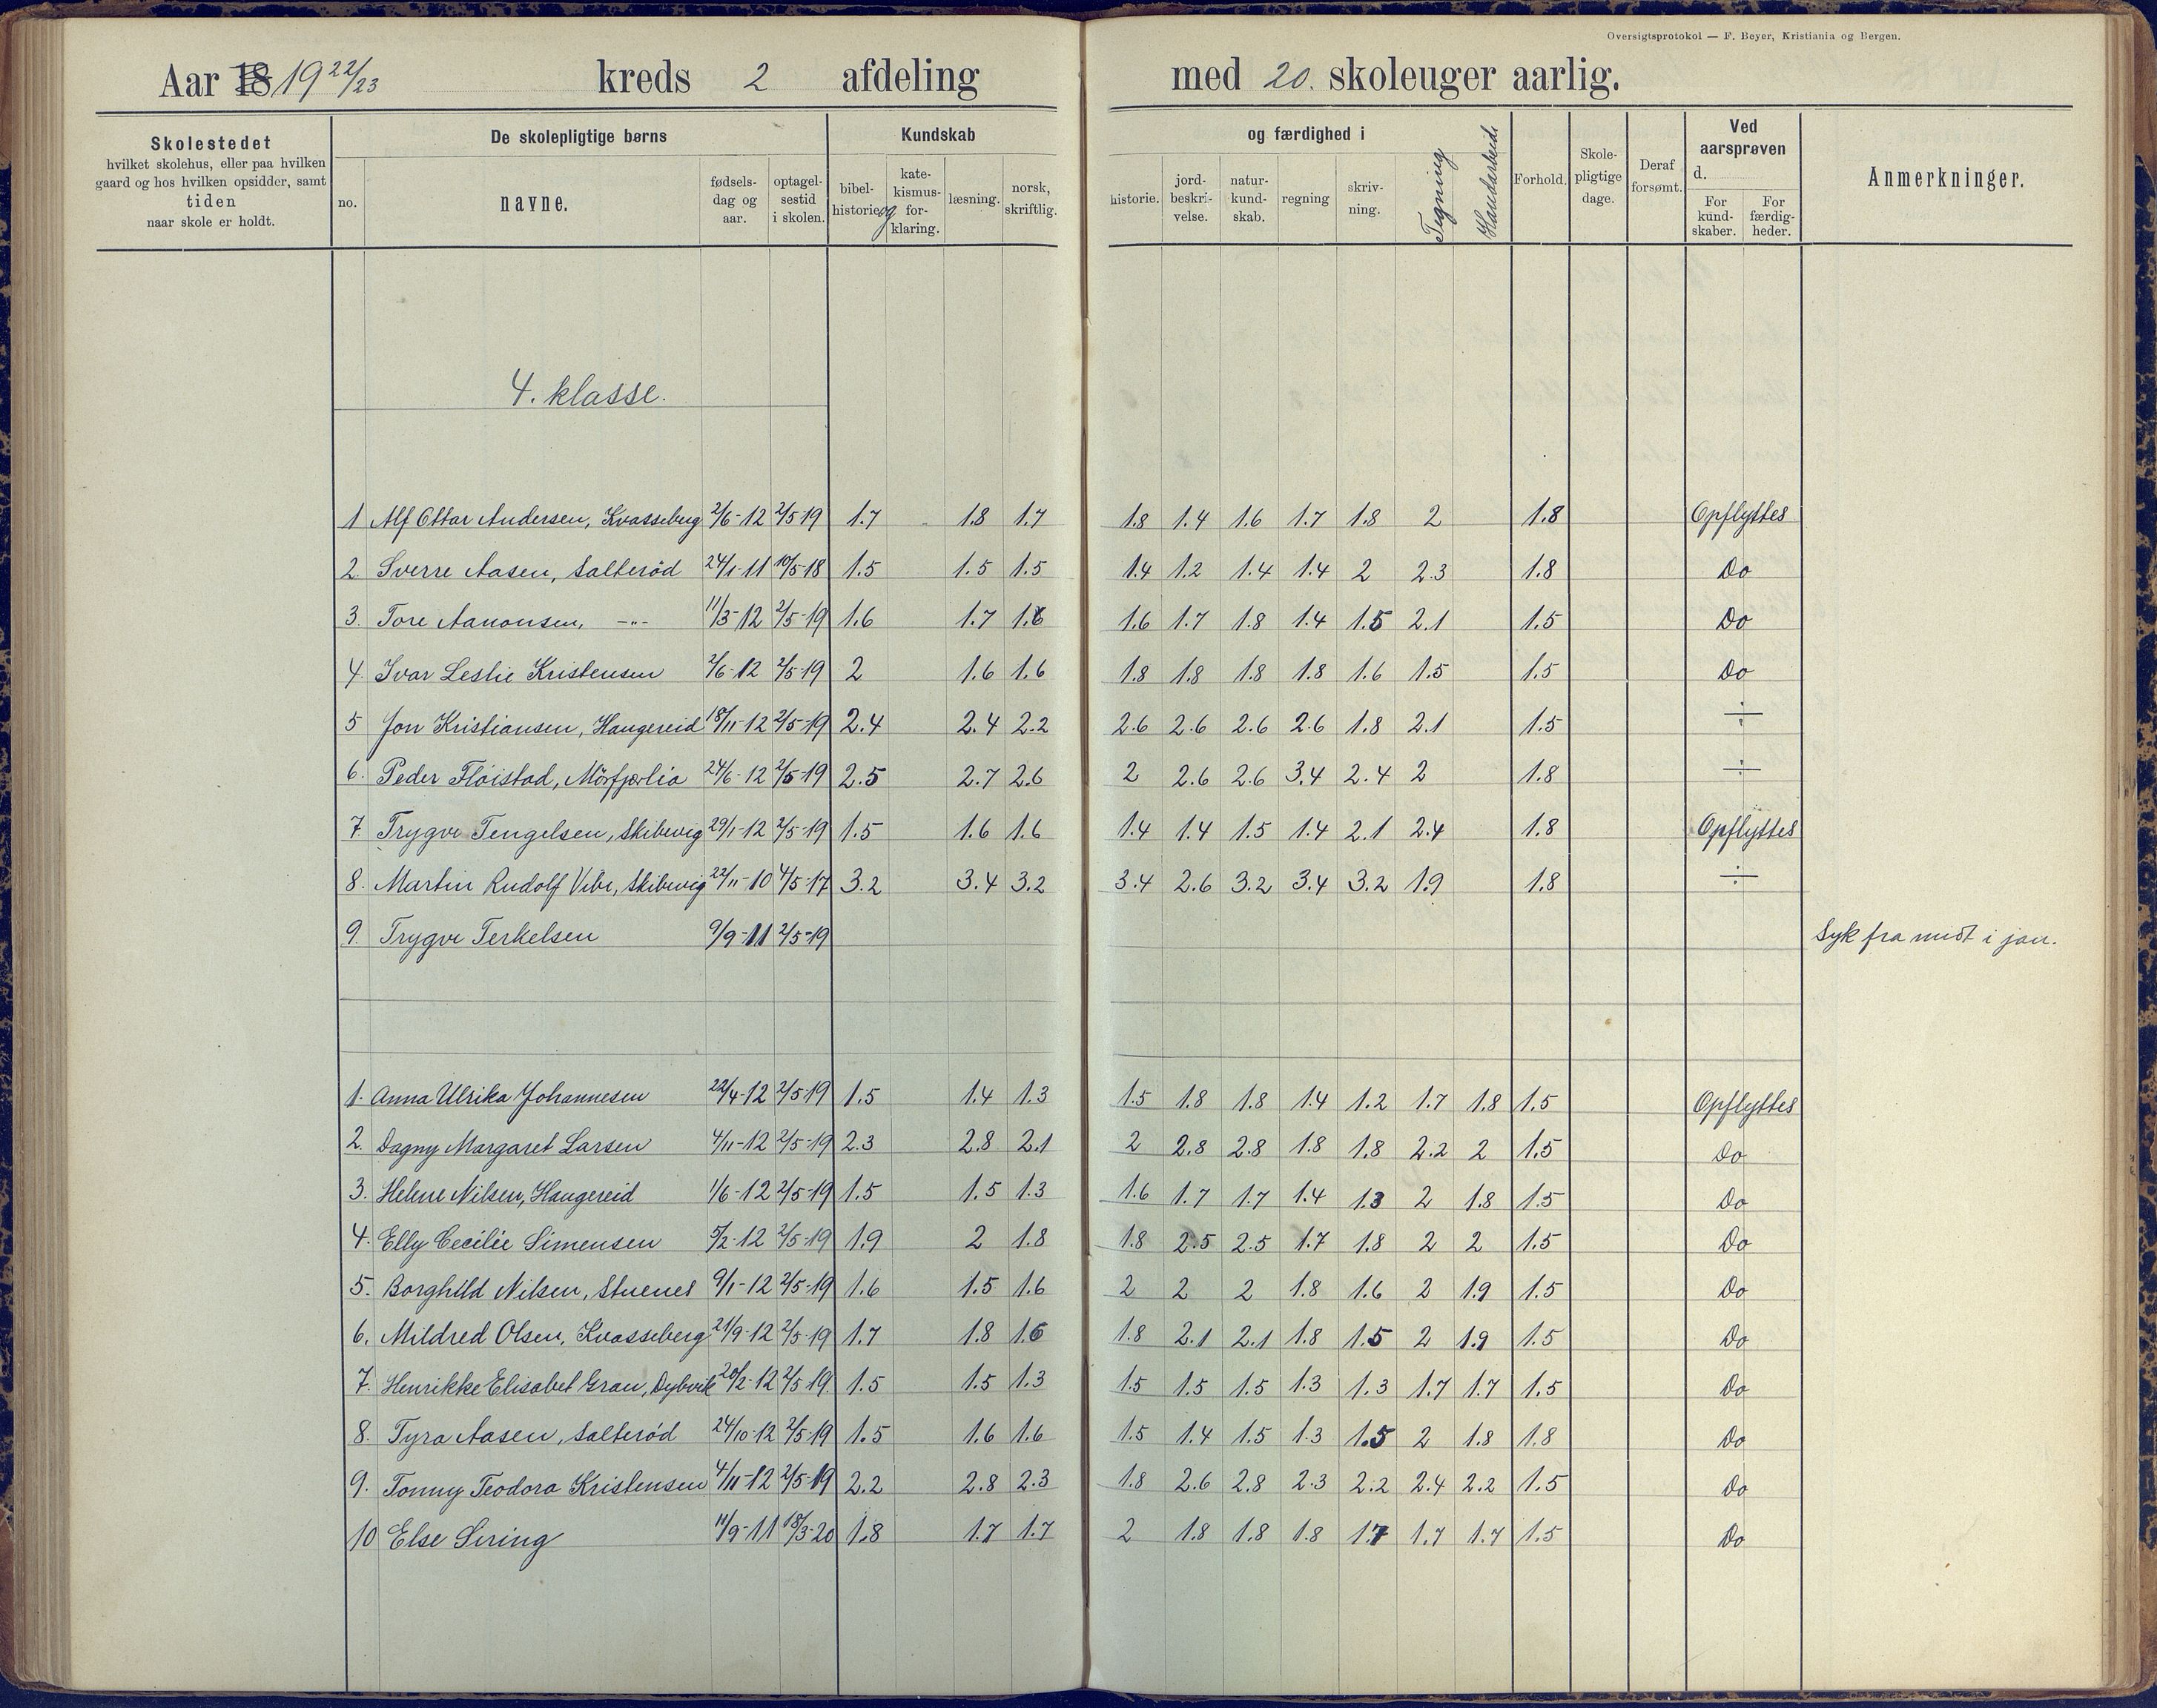 Oversigtsprotokol — F. Beyer, Kristiania og Bergen.
Aar 18 19 22/23 kreds 2 afdeling med 20. skoleuger aarlig.
Skolestedet hvilket skolehus, eller paa hvilken gaard og hos hvilken opsidder, samt tiden naar skole er holdt.
De skolepligtige børns
no.
navne.
fødsels-dag og aar.
optagel-sestid i skolen.
Kundskab
bibel-historie. og
kate-kismus-for-klaring.
læsning.
norsk, skriftlig.
og færdighed i
historie.
jord-beskri-velse.
natur-kund-skab.
regning
skriv-ning.
Tegning
Haandarbeide
Forhold.
Skole-pligtige dage.
Deraf forsømt.
Ved aarsprøven d.
For kund-skaber.
For færdig-heder.
Anmerkninger.
4. klasse.
1 Alf Ottar Andersen, Kvasseberg 2/6-12 2/5-19 1.7 1.8 1.7 1.8 1.4 1.6 1.7 1.8 2 1.8 Opflyttes
2. Sverre Aasen, Salterød 24/1-11 10/5-18 1.5 1.5 1.5 1.4 1.2 1.4 1.4 2 2.3 1.8 Do
3. Tore Aanonsen, -"- 11/3-12 2/5-19 1.6 1.7 1.6 1.6 1.7 1.8 1.4 1.5 2.1 1.5 Do
4. Ivar Leslie Kristensen 2/6-12 2/5-19 2 1.6 1.6 1.8 1.8 1.8 1.8 1.6 1.5 1.5 Do
5 Jon Kristiansen, Haugereid 18/11-12 2/5-19 2.4 2.4 2.2 2.6 2.6 2.6 2.6 1.8 2.1 1.5 ÷
6. Peder Fløistad, Mörfjærlia 24/6-12 2/5-19 2.5 2.7 2.6 2 2.6 2.6 3.4 2.4 2 1.8 ÷
7. Trygve Tengelsen, Skibevig 29/1-12 2/5-19 1.5 1.6 1.6 1.4 1.4 1.5 1.4 2.1 2.4 1.8 Opflyttes
8. Martin Rudolf Vibe, Skibevig 22/11-10 4/5-17 3.2 3.4 3.2 3.4 2.6 3.2 3.4 3.2 1.9 1.8 ÷
9. Trygve Terkelsen 9/9-11 2/5-19 Syk fra midt i jan.
1. Anna Ulrika Johannesen 22/4-12 2/5-19 1.5 1.4 1.3 1.5 1.8 1.8 1.4 1.2 1.7 1.8 1.5 Opflyttes
2. Dagny Margaret Larsen 4/11-12 2/5-19 2.3 2.8 2.1 2 2.8 2.8 1.8 1.8 2.2 2 1.5 Do
3. Helene Nilsen, Haugereid 1/6-12 2/5-19 1.5 1.5 1.3 1.6 1.7 1.7 1.4 1.3 2 1.8 1.5 Do
4. Elly Cecilie Simensen 5/2-12 2/5-19 1.9 2 1.8 1.8 2.5 2.5 1.7 1.8 2 2 1.5 Do
5. Borghild Nilsen, Stuenes 9/1-12 2/5-19 1.6 1.5 1.6 2 2 2 1.8 1.6 2 1.9 1.5 Do
6. Mildred Olsen, Kvasseberg 21/9-12 2/5-19 1.7 1.8 1.6 1.8 2.1 2.1 1.8 1.5 2 1.9 1.5 Do
7. Henrikke Elisabet Grau, Dybvik 20/2-12 2/5-19 1.5 1.5 1.3 1.5 1.5 1.5 1.3 1.3 1.7 1.7 1.5 Do
8. Tyra Aasen, Salterød 24/10-12 2/5-19 1.5 1.6 1.6 1.5 1.4 1.5 1.3 1.5 2 1.8 1.8 Do
9. Tonny Teodora Kristensen 4/11-12 2/5-19 2.2 2.8 2.3 1.8 2.6 2.8 2.3 2.2 2.4 2.2 1.5 Do
10 Else Siring 11/9-11 18/3-20 1.8 1.7 1.7 2 1.8 1.8 1.8 1.7 1.7 1.7 1.5 Do